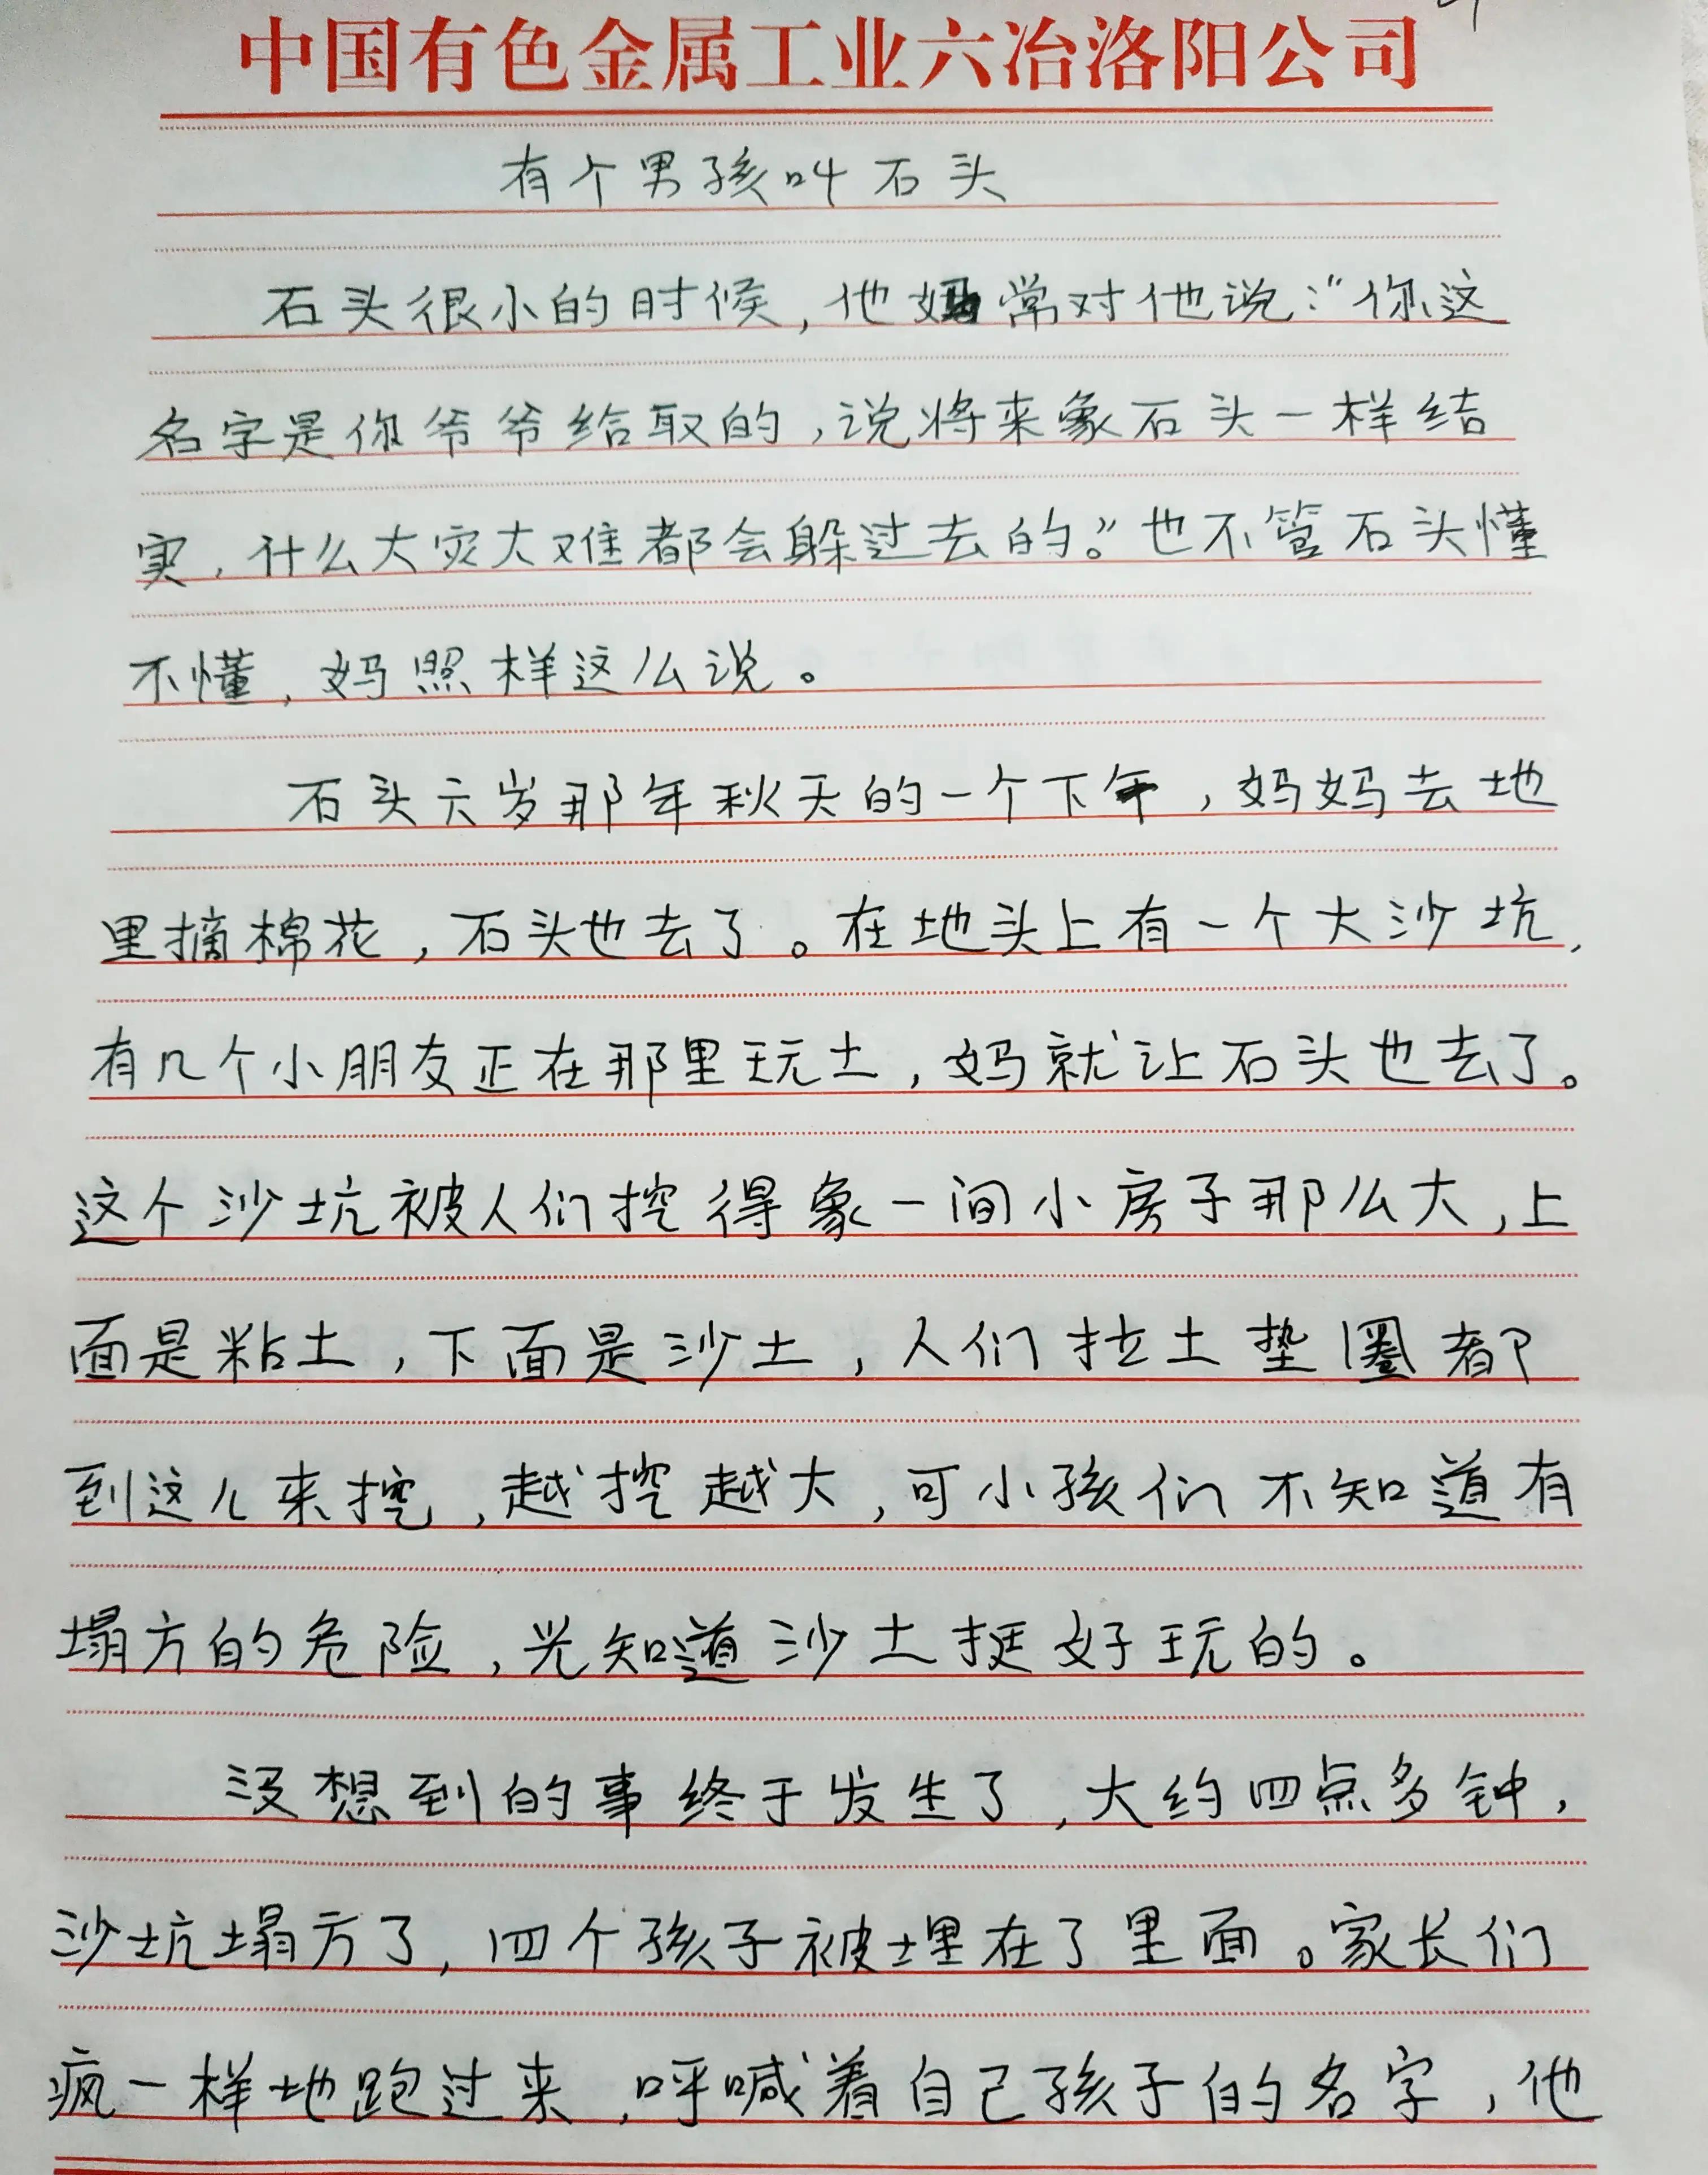 中国有色金属工业六冶洛阳公司
有个男孩叫石头
石头很小的时候，他妈常对他说：“你这
名字是你爷爷给取的，说将来象石头一样结
实，什么大灾大难都会躲过去的。”也不管石头懂
不懂，妈照样这么说。
石头六岁那年秋天的一个下午，妈妈去地
里摘棉花，石头也去了。在地头上有一个大沙坑，
有几个小朋友正在那里玩土，妈就让石头也去了。
这个沙坑被人们挖得象一间小房子那么大，上
面是粘土，下面是沙土，人们拉土垫圈都
到这儿来挖，越挖越大，可小孩们不知道有
塌方的危险，光知道沙土挺好玩的。
没想到的事终于发生了，大约四点多钟，
沙坑塌方了，四个孩子被埋在了里面。家长们
疯一样地跑过来，呼喊着自己孩子的名字，他